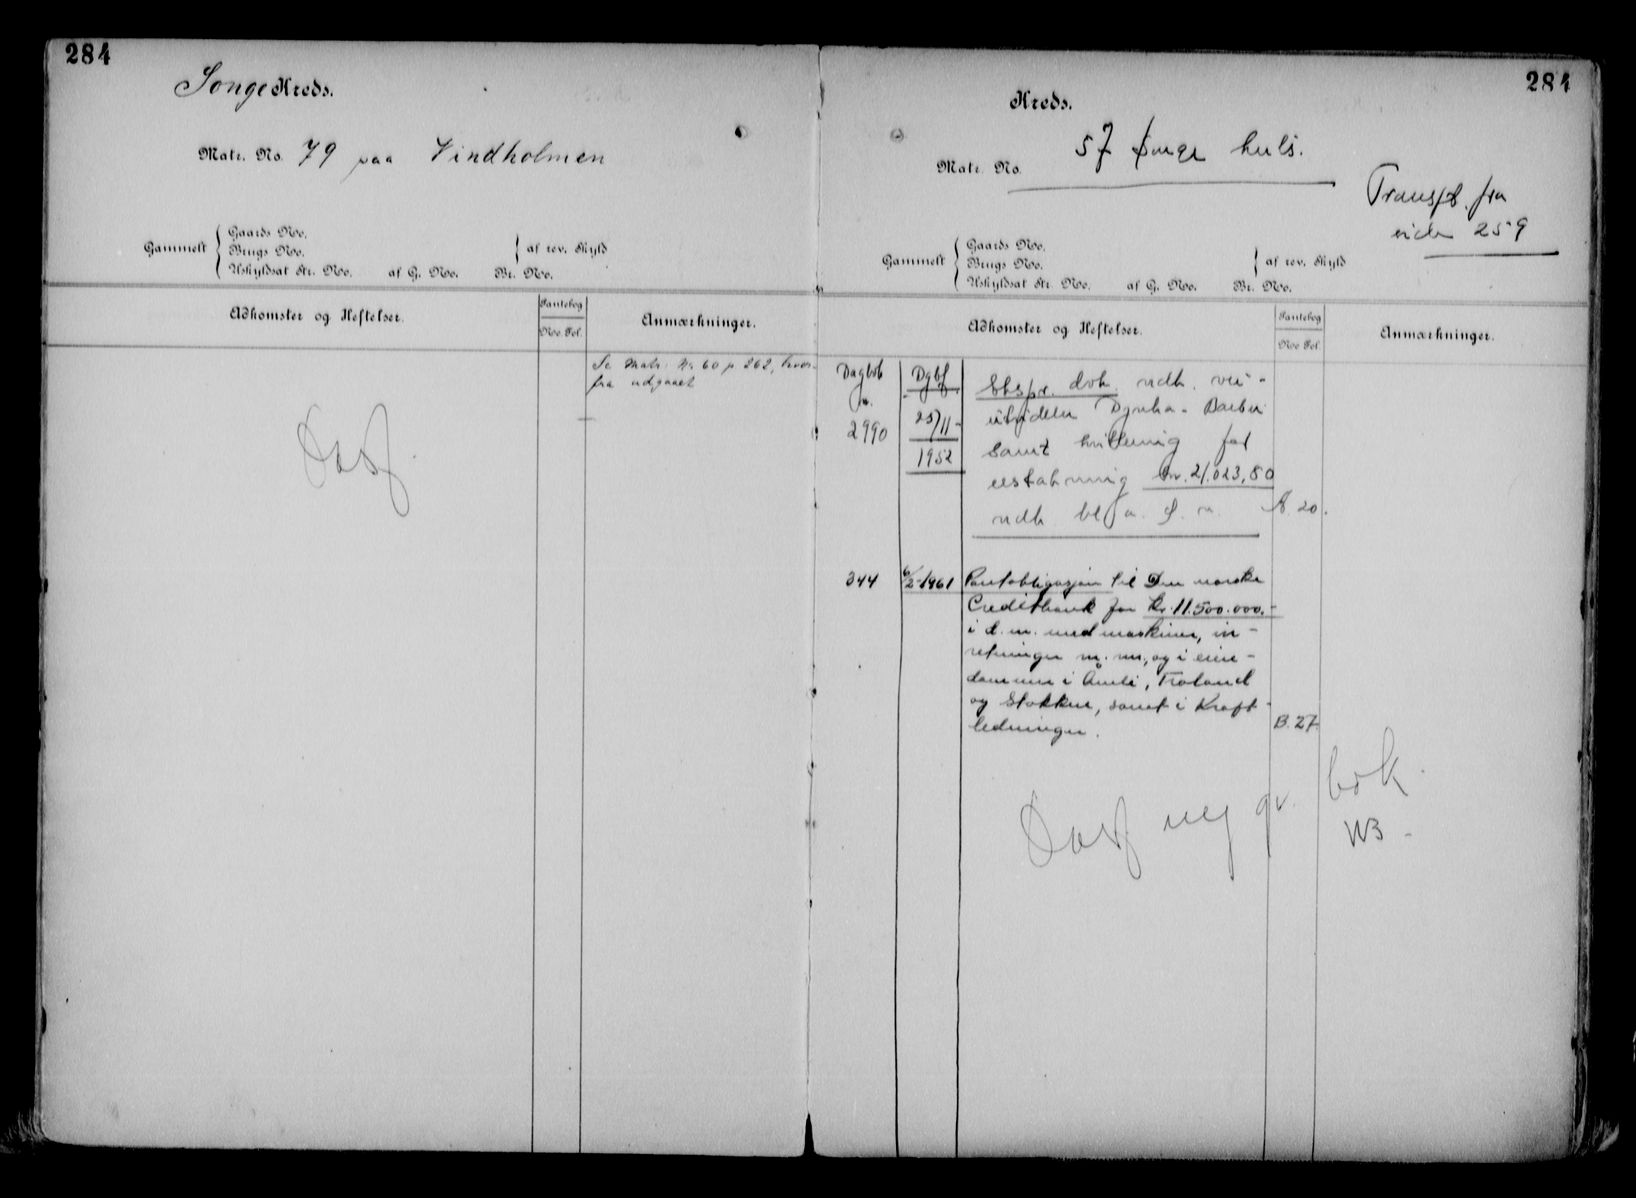 284
Songe Kreds.
Matr. No. 79 paa Vindholmen
Gammelt
Gaards No.
Brugs No.
Uskyldsat Str. No. af G. No. Br. No.
af rev. Skyld
Adkomster og Heftelser.
Pantebog
No. Fol.
Anmærkninger.
Se Matr. No. 60 p 262, hvor-
fra udgaaet
284
Kreds.
Matr. No. 57 Songe huls.
Transp. fra
side 259
Gammelt
Gaards No.
Brugs No.
Uskyldsat Str. No. af G. No. Br. No.
af rev. Skyld
Adkomster og Heftelser.
Pantebog
No Fol.
Anmærkninger.
Dagbok
nr. Dgbf
2990 25/11-
1952
Ekspr. dok. vedk. vei-
samt for
kr. 21.023,50
vedk. A. 20.
344 6/2-1961 Pantobligasjon til Den norske
Creditbank for kr. 11.500.000.-
i d. m. med maskiner, inn-
retninger m. m., og i eien-
dommer i Åmli, Froland
og Stokken, samt i Kraft-
ledninger. B. 27.
ny gr. bok.